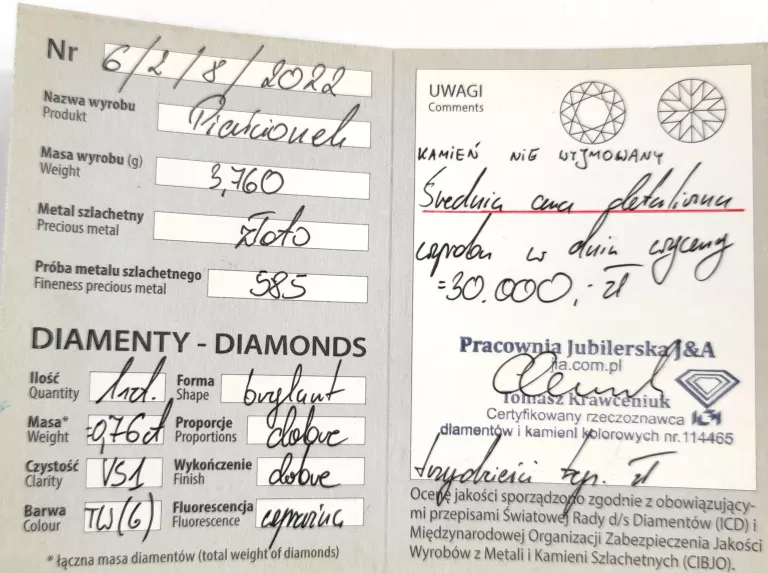 Nr 6/2/8/2022
Nazwa wyrobu
Produkt
Pierścionek
Masa wyrobu (g)
Weight
3,760
Metal szlachetny
Precious metal
złoto
Próba metalu szlachetnego
Fineness precious metal
585
DIAMENTY - DIAMONDS
Ilość
Quantity
Forma
Shape
brylant
Masa*
Weight
=0,76ct
Proporcje
Proportions
dobre
Czystość
Clarity
VS1
Wykończenie
Finish
dobre
Barwa
Colour
TW(G)
Fluorescencja
Fluorescence
* łączna masa diamentów (total weight of diamonds)
UWAGI
Comments
KAMIEŃ NIE WYJMOWANY
Średnia cena detaliczna
wyrobu w dniu wyceny
=30.000,- zł
Pracownia Jubilerska J&A
Tomasz Krawczeniuk
Certyfikowany rzeczoznawca
diamentów i kamieni kolorowych nr. 114465
trzydzieści tys. zł
Ocenę jakości sporządzono zgodnie z obowiązujący-
mi przepisami Światowej Rady d/s Diamentów (ICD) i
Międzynarodowej Organizacji Zabezpieczenia Jakości
Wyrobów z Metali i Kamieni Szlachetnych (CIBJO).